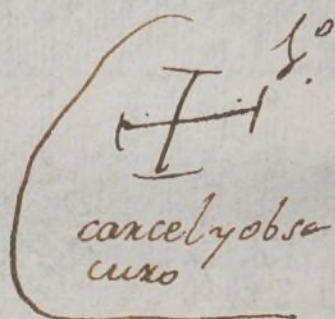 carcel y obsc
curo